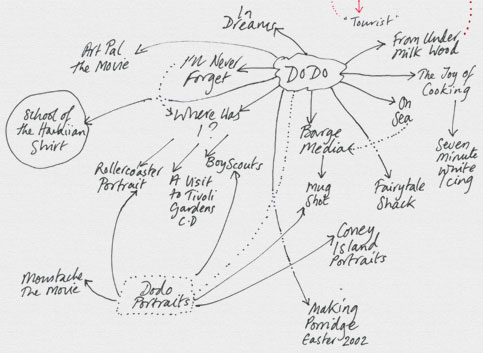 In
Dreams
"Tourist"
Art Pal
The Movie
I'll Never
Forget
DODO
From Under
Milk Wood
The Joy of
Cooking
On
Sea
School of
the Hawaiian
Shirt
Where Was
I?
Barge
Media
Seven
Minute
White
Icing
Rollercoaster
Portrait
A Visit
to Tivoli
Gardens
C.D
Boy Scouts
Mug
Shot
Fairytale
Shack
Coney
Island
Portraits
Moustache
The Movie
Dodo
Portraits
Making
Porridge
Easter 2002